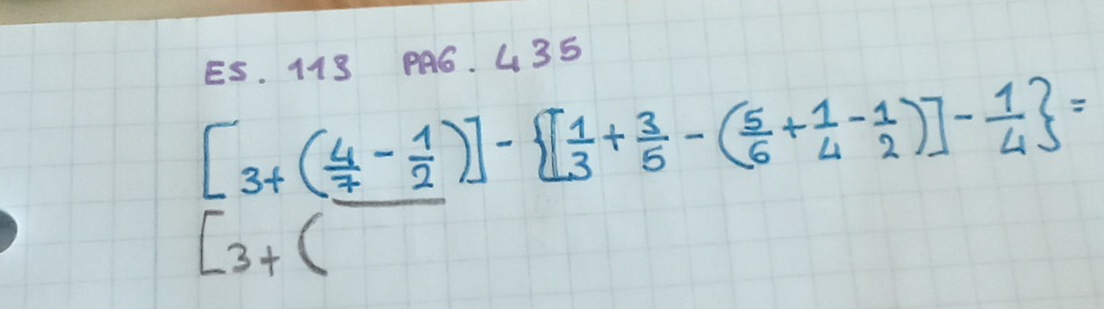 ES. 113 PAG. 435
[3+(4/7 - 1/2)] - {[1/3 + 3/5 - (5/6 + 1/4 - 1/2)] - 1/4} =
[3+(